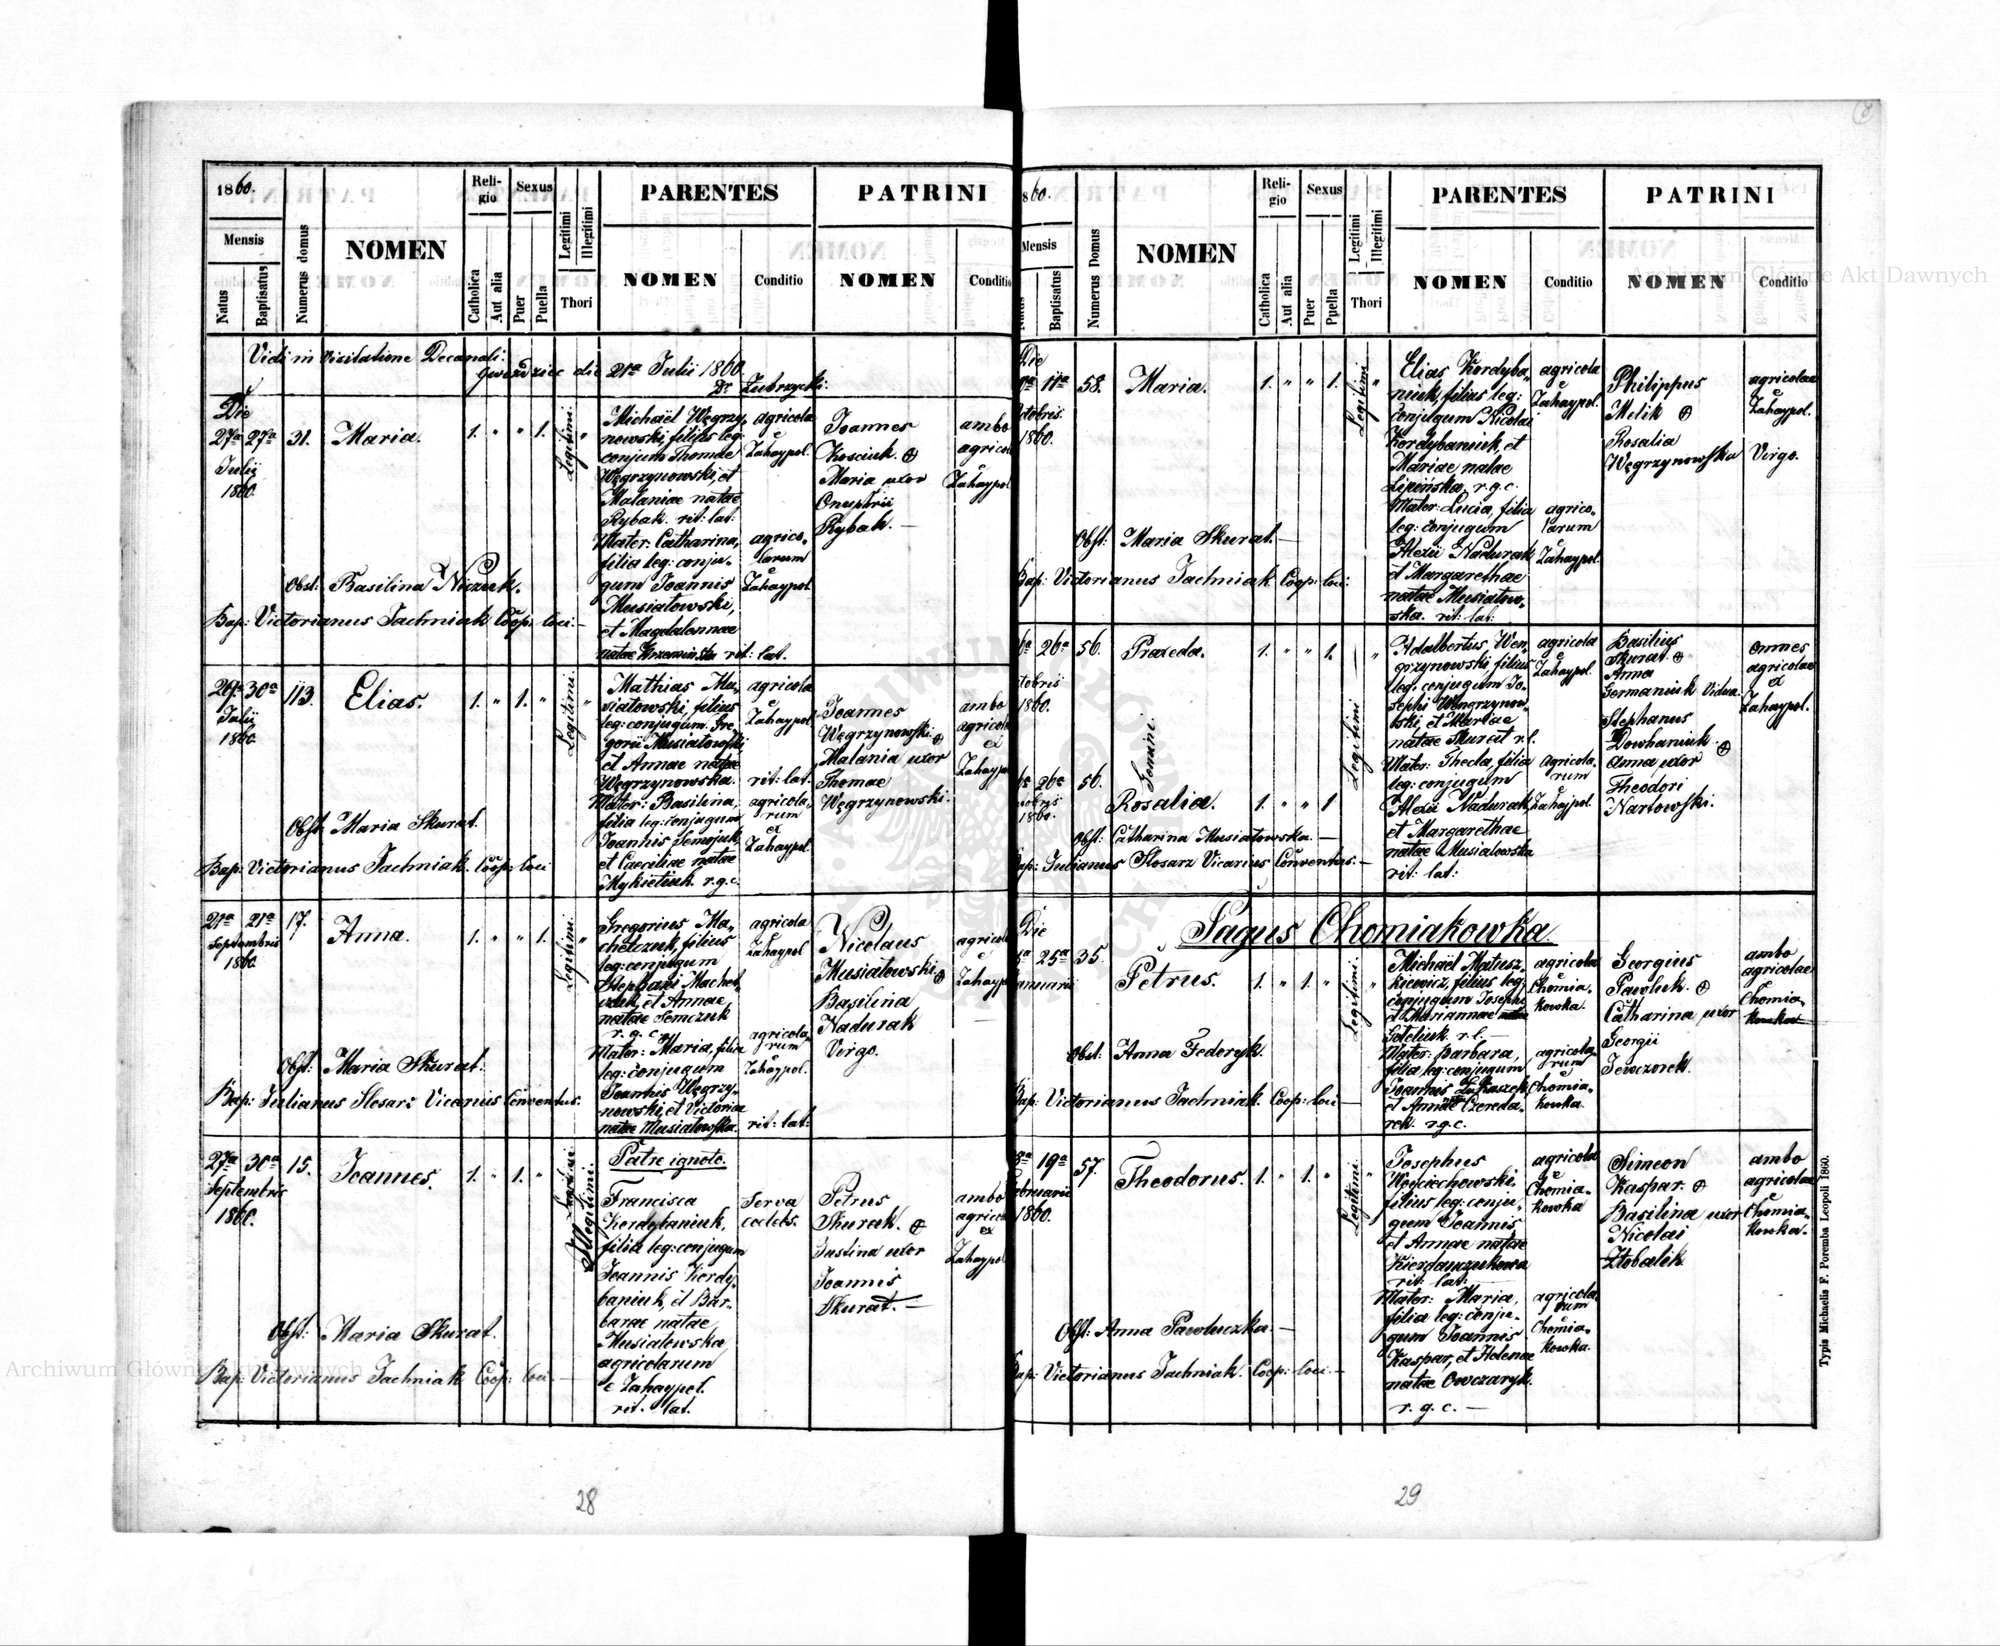 1860.
Mensis
Natus
Baptisatus
Numerus domus
NOMEN
Religio
Catholica
Aut alia
Sexus
Puer
Puella
Legitimi
Illegitimi
Thori
PARENTES
NOMEN
Conditio
PATRINI
NOMEN
Conditio
Vidi in Visitatione Decanali:
die 21a Julii 1860.
Die
27a 27a 31. Maria. 1. " " 1. Legitimi. "
Julii
1860.
Michaël Węgrzy-
nowski, filius leg:
conjum Thomae
Węgrzynowski, et
Malaniae natae
Rybak. rit: lat:
Mater: Catharina,
filia leg: conju-
gum Joannis
Musiatowski,
et Magdalennae
natae Krzemińska rit: lat.
agricola
e
Zahaypol.
agrico-
larum
e
Zahaypol.
Joannes
Kosciuk. ⊕
Maria uxor
Onuphrii
Rybak. —
ambo
agricol
e
Zahaypol
Obst: Basilina Niczuk.
Bap: Victorianus Jachniak Coop: loci: —
29a 30a 113. Elias. 1. " 1. " Legitimi. "
Julii
1860.
Mathias Mu-
siatowski, filius
leg: conjugum Gre-
gorii Musiatowski
et Annae natae
Węgrzynowska. rit: lat.
Mater: Basilina,
filia leg: conjugum
Joannis Semojuk,
et Caeciliae natae
Mykietiuk. r. g. c.
agricola
e
Zahaypol.
agricola-
rum
ex
Zahaypol.
Joannes
Węgrzynowski. ⊕
Malania uxor
Thomae
Węgrzynowski.
ambo
agricol
ex
Zahaypol
Obst: Maria Skurat.
Bap: Victorianus Jachniak. Coop: loci
21a 21a 17. Anna. 1. " " 1. Legitimi. "
Septembris
1860.
Gregorius Ma-
chelczuk, filius
leg: conjugum
Stephani Machel-
czuk, et Annae,
natae Semczuk
r. g. c.
Mater: Maria, filia
leg: conjugum
Joannis Węgrzy-
nowski, et Victoriae
natae Musiatowska. rit: lat:
agricola
e
Zahaypol
agricola-
rum
e
Zahaypol.
Nicolaus
Musiatowski. ⊕
Basilina
Nadurak
Virgo.
agricol
e
Zahaypol
Obst: Maria Skurat.
Bap: Julianus Slosarz Vicarius Conventus.
27a 30a 15. Joannes. 1. " 1. " Illegitimi.
Septembris
1860.
Patre ignoto.
Francisca
Kordybaniuk,
filia leg: conjugum
Joannis Kordy-
baniuk, et Bar-
barae natae
Musiatowska,
agricolarum
e Zahaypol.
rit. lat.
Serva
coelebs.
Petrus
Skurak. ⊕
Justina uxor
Joannis
Skurat. —
ambo
agricol
ex
Zahaypol
Obst: Maria Skurat.
Bap: Victorianus Jachniak Coop: loci —
28
860.
Mensis
Natus
Baptisatus
Numerus Domus
NOMEN
Religio
Catholica
Aut alia
Sexus
Puer
Puella
Legitimi
Illegitimi
Thori
PARENTES
NOMEN
Conditio
PATRINI
NOMEN
Conditio
Die
11a 58. Maria. 1. " " 1. Legitimi. "
ctobris.
1860.
Elias Kordyba-
niuk, filius leg:
conjugum Nicolai
Kordybaniuk, et
Mariae natae
Lipińska. r. g. c.
Mater: Lucia, filia
leg: conjugum
Alexii Nadurak
et Margarethae
natae Musiatow-
ska. rit: lat:
agricola
e
Zahaypol.
agrico-
larum
e
Zahaypol.
Philippus
Melik ⊕
Rosalia
Węgrzynowska
agricolae
e
Zahaypol.
Virgo.
Obst: Maria Skurat. —
Bap: Victorianus Jachniak Coop: loci:
26a 56. Praxeda. 1. " " 1. Legitimi "
ctobris
1860.
Gemini.
26a 56. Rosalia. 1. " " 1
1860.
Adalbertus Wen-
grzynowski, filius
leg: conjugum Jo-
sephi Wengrzynow-
ski, et Mariae
natae Skurat r. l.
Mater: Thecla, filia
leg: conjugum
Alexii Nadurak,
et Margarethae
natae Musiatowska
rit: lat:
agricola
e
Zahaypol.
agricola-
rum
e
Zahaypol.
Basilius
Skurat. ⊕
Anna
Germaniuk Vidua.
Stephanus
Dowhaniuk. ⊕
Anna uxor
Theodori
Nartowski.
omnes
agricolae
ex
Zahaypol.
Obst: Catharina Musiatowska. —
Bap: Julianus Slosarz Vicarius Conventus. —
Pagus Chomiakowka.
Die
25a 35. Petrus. 1. " 1. " Legitimi. "
Januarii
Michaël Matusz-
kiewicz, filius leg:
conjugum Josephi
et Mariannae natae
r. l. —
Mater: Barbara,
filia leg: conjugum
Joannis Lukaszek,
et Annae Czereda-
rek. r. g. c.
agricola
e
Chomia-
kowka.
agricola-
rum
e
Chomia-
kowka.
Georgius
Pawluk. ⊕
Catharina uxor
Georgii
ambo
agricolae
e
Chomia-
kowka
Obst: Anna Fedoryk.
Bap: Victorianus Jachniak. Coop: loci —
19a 57. Theodorus. 1. " 1. " Legitimi. "
Februarii
1860.
Josephus
Woyciechowski,
filius leg: conju-
gum Joannis
et Annae natae
rit: lat:
Mater: Maria,
filia leg: conju-
gum Joannis
Kaspar, et Helenae
natae Owczaryk.
r. g. c. —
agricola
e
Chomia-
kowka
agricola-
rum
e
Chomia-
kowka.
Simeon
Kaspar. ⊕
Basilina uxor
Nicolai
ambo
agricolae
e
Chomia-
kowka.
Obst: Anna Pawluczka. —
Bap: Victorianus Jachniak. Coop: loci —
29
Typis Michaelis F. Poremba Leopoli 1860.
Archiwum Główne Akt Dawnych
Archiwum Główne Akt Dawnych